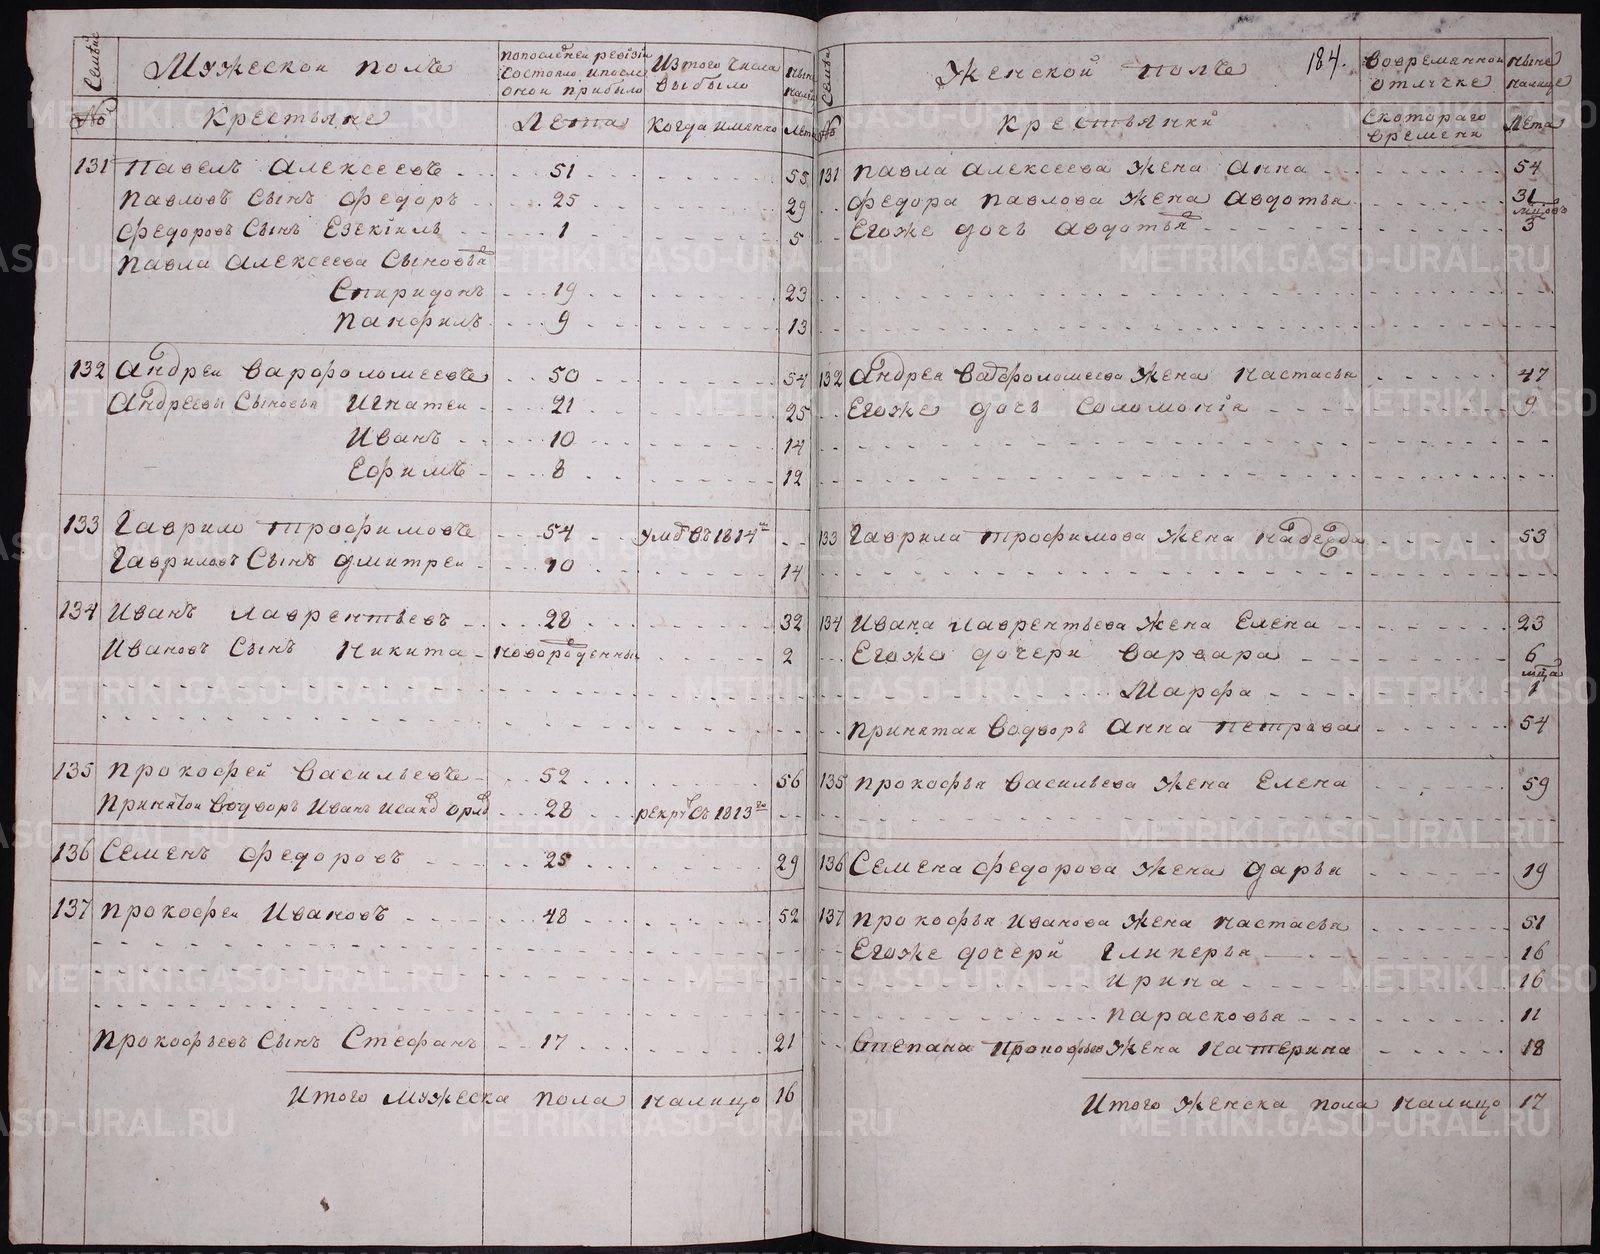 Семьи № Мужеской полъ
Крестьяне
Попоследней ревізіи состояло ипосле оной прибыло
Лета
Изтого числа выбыло
Когда имянно
ныне налицо
Лета
131 Павелъ Алексеевъ 51 55
Павловъ Сынъ Федоръ 25 29
Федоровъ Сынъ Езекіиль 1 5
Павла Алексеева Сыновья
Спиридонъ 19 23
Панфилъ 9 13
132 Андреи Варфоломеевъ 50 54
Андреевы Сыновья Игнатеи 21 25
Иванъ 10 14
Ефимъ 8 12
133 Гаврило Трофимовъ 54 умръ въ 1814м
Гавриловъ Сынъ Дмитреи 10 14
134 Иванъ Лаврентьевъ 28 32
Ивановъ Сынъ Никита новорожденныи 2
135 Прокофей Васильевъ 52 56
Принятои Водворъ Иванъ Исаковъ Орловъ 28 рекру въ 1813го
136 Семенъ Федоровъ 25 29
137 Прокофеи Ивановъ 48 52
Прокофьевъ Сынъ Стефанъ 17 21
Итого Мужеска пола налицо 16
Семьи № Женской полъ 184.
Крестьянки
Вовременной отлучке
Скотораго времени
ныне налице
Лета
131 Павла Алексеева Жена Анна 54
Федора Павлова Жена Авдотья 31
Егоже дочь Авдотья мцовъ 3
132 Андрея Варфоломеева Жена Настасья 47
Егоже дочь Соломонія 9
133 Гаврила Трофимова Жена Надежда 53
134 Ивана Лаврентьева Жена Елена 23
Егоже дочери Варвара 6
Марфа мца 1
Принятая Водворъ Анна Петрова 54
135 Прокофья Васильева Жена Елена 59
136 Семена Федорова Жена Дарья 19
137 Прокофья Иванова Жена Настасья 51
Егоже дочери Гликерья 16
Ирина 16
Парасковья 11
Степана Прокофьева Жена Катерина 18
Итого Женска пола налицо 17
METRIKI.GASO-URAL.RU